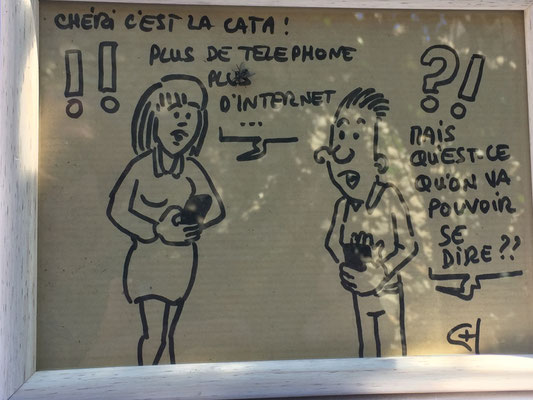 CHÉRI C'EST LA CATA !
PLUS DE TELEPHONE
PLUS
D'INTERNET
...
!!
?!
MAIS
QU'EST-CE
QU'ON VA
POUVOIR
SE
DIRE ??